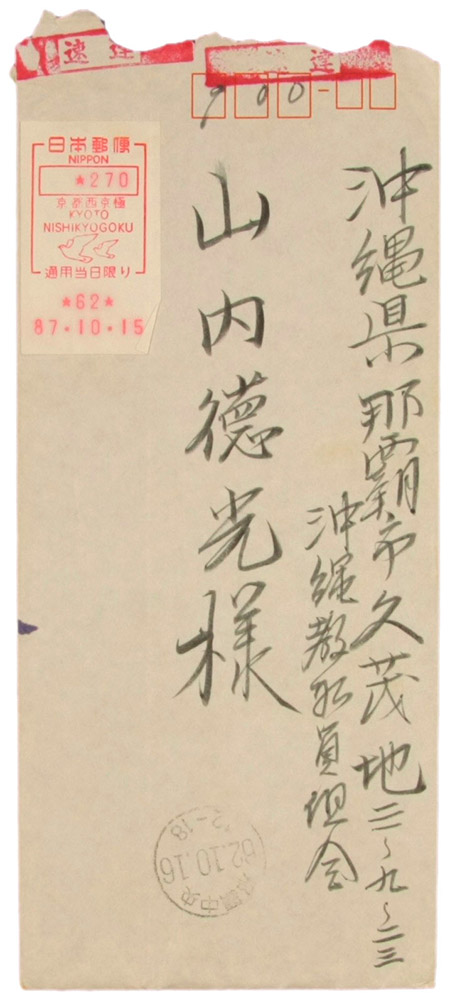 速達
速達
900
日本郵便
NIPPON
★270
京都西京極
KYOTO
NISHIKYOGOKU
適用当日限り
★62★
87.10.15
沖縄県那覇市久茂地二〜九〜二三
沖縄教職員組合
山内徳光様
中央
62.10.16
12-18